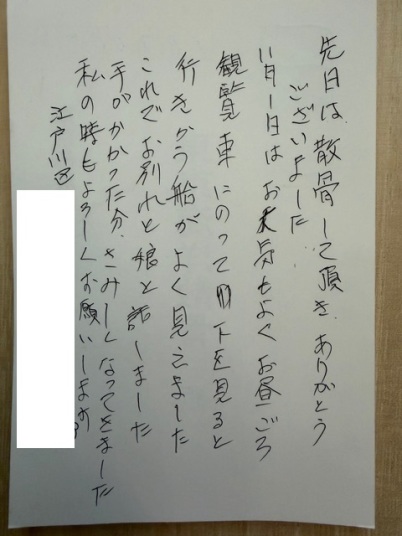 先日は、散骨して頂き、ありがとう
ございました
11月1日は お天気もよく お昼ごろ
観覧車にのって 下を見ると
行きかう船が よく見えました
これでお別れと 娘と話しました
手がかかった分、さみしくなってきました
私の時もよろしくお願いします
江戸川区